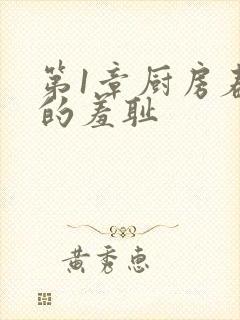 第1章厨房春
的羞耻
黄秀惠